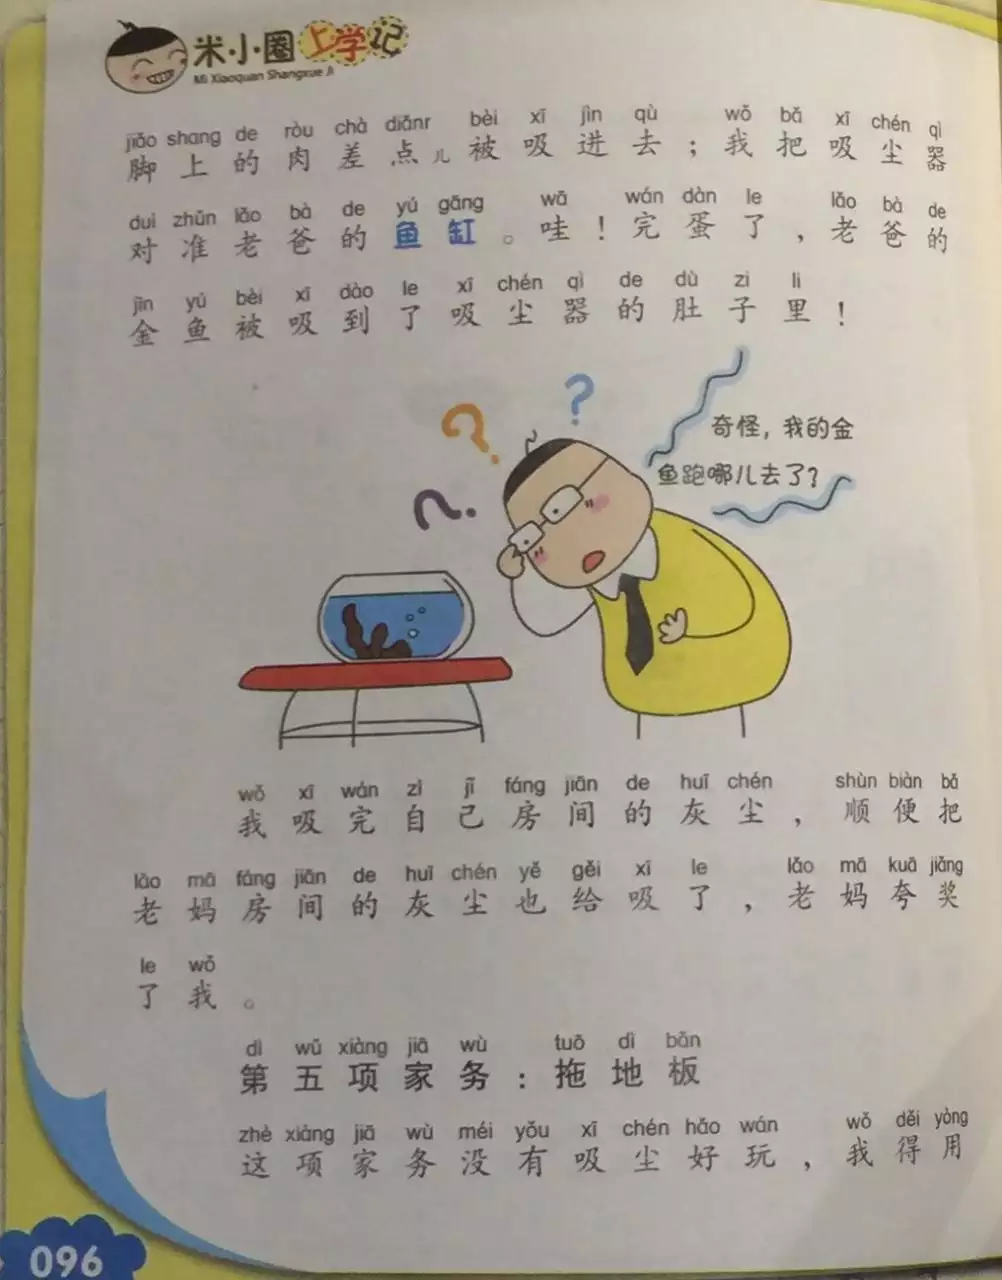 米小圈上学记
Mi Xiaoquan Shangxue Ji
jiǎo shang de ròu chà diǎnr bèi xī jìn qù wǒ bǎ xī chén qì
脚上的肉差点儿被吸进去；我把吸尘器
duì zhǔn lǎo bà de yú gāng wā wán dàn le lǎo bà de
对准老爸的鱼缸。哇！完蛋了，老爸的
jīn yú bèi xī dào le xī chén qì de dù zi li
金鱼被吸到了吸尘器的肚子里！
奇怪，我的金
鱼跑哪儿去了？
wǒ xī wán zì jǐ fáng jiān de huī chén shùn biàn bǎ
我吸完自己房间的灰尘，顺便把
lǎo mā fáng jiān de huī chén yě gěi xī le lǎo mā kuā jiǎng
老妈房间的灰尘也给吸了，老妈夸奖
le wǒ
了我。
dì wǔ xiàng jiā wù tuō dì bǎn
第五项家务：拖地板
zhè xiàng jiā wù méi yǒu xī chén hǎo wán wǒ děi yòng
这项家务没有吸尘好玩，我得用
096